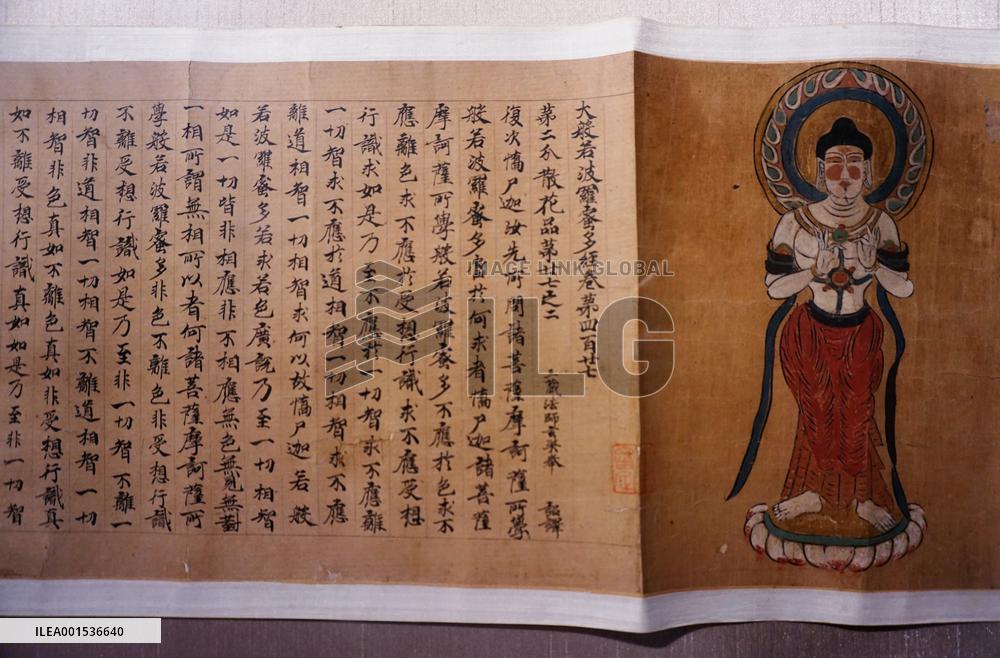 大般若波羅蜜多經卷第四百廿七
第二分散花品第廿七之二
三藏法師玄奘奉 詔譯
復次憍尸迦汝先所問諸菩薩摩訶薩所學
般若波羅蜜多當於何求者憍尸迦諸菩薩
摩訶薩所學般若波羅蜜多不應於色求不
應離色求不應於受想行識求不應離受想
行識求如是乃至不應於一切智求不應離
一切智求不應於道相智一切相智求不應
離道相智一切相智求何以故憍尸迦若般
若波羅蜜多若求若色廣說乃至一切相智
如是一切皆非相應非不相應無色無見無對
一相所謂無相所以者何諸菩薩摩訶薩所
學般若波羅蜜多非色不離色非受想行識
不離受想行識如是乃至非一切智不離一
切智非道相智一切相智不離道相智一切
相智非色真如不離色真如非受想行識真
如不離受想行識真如如是乃至非一切智
IMAGE LINK GLOBAL
ILG
ILEA001536640